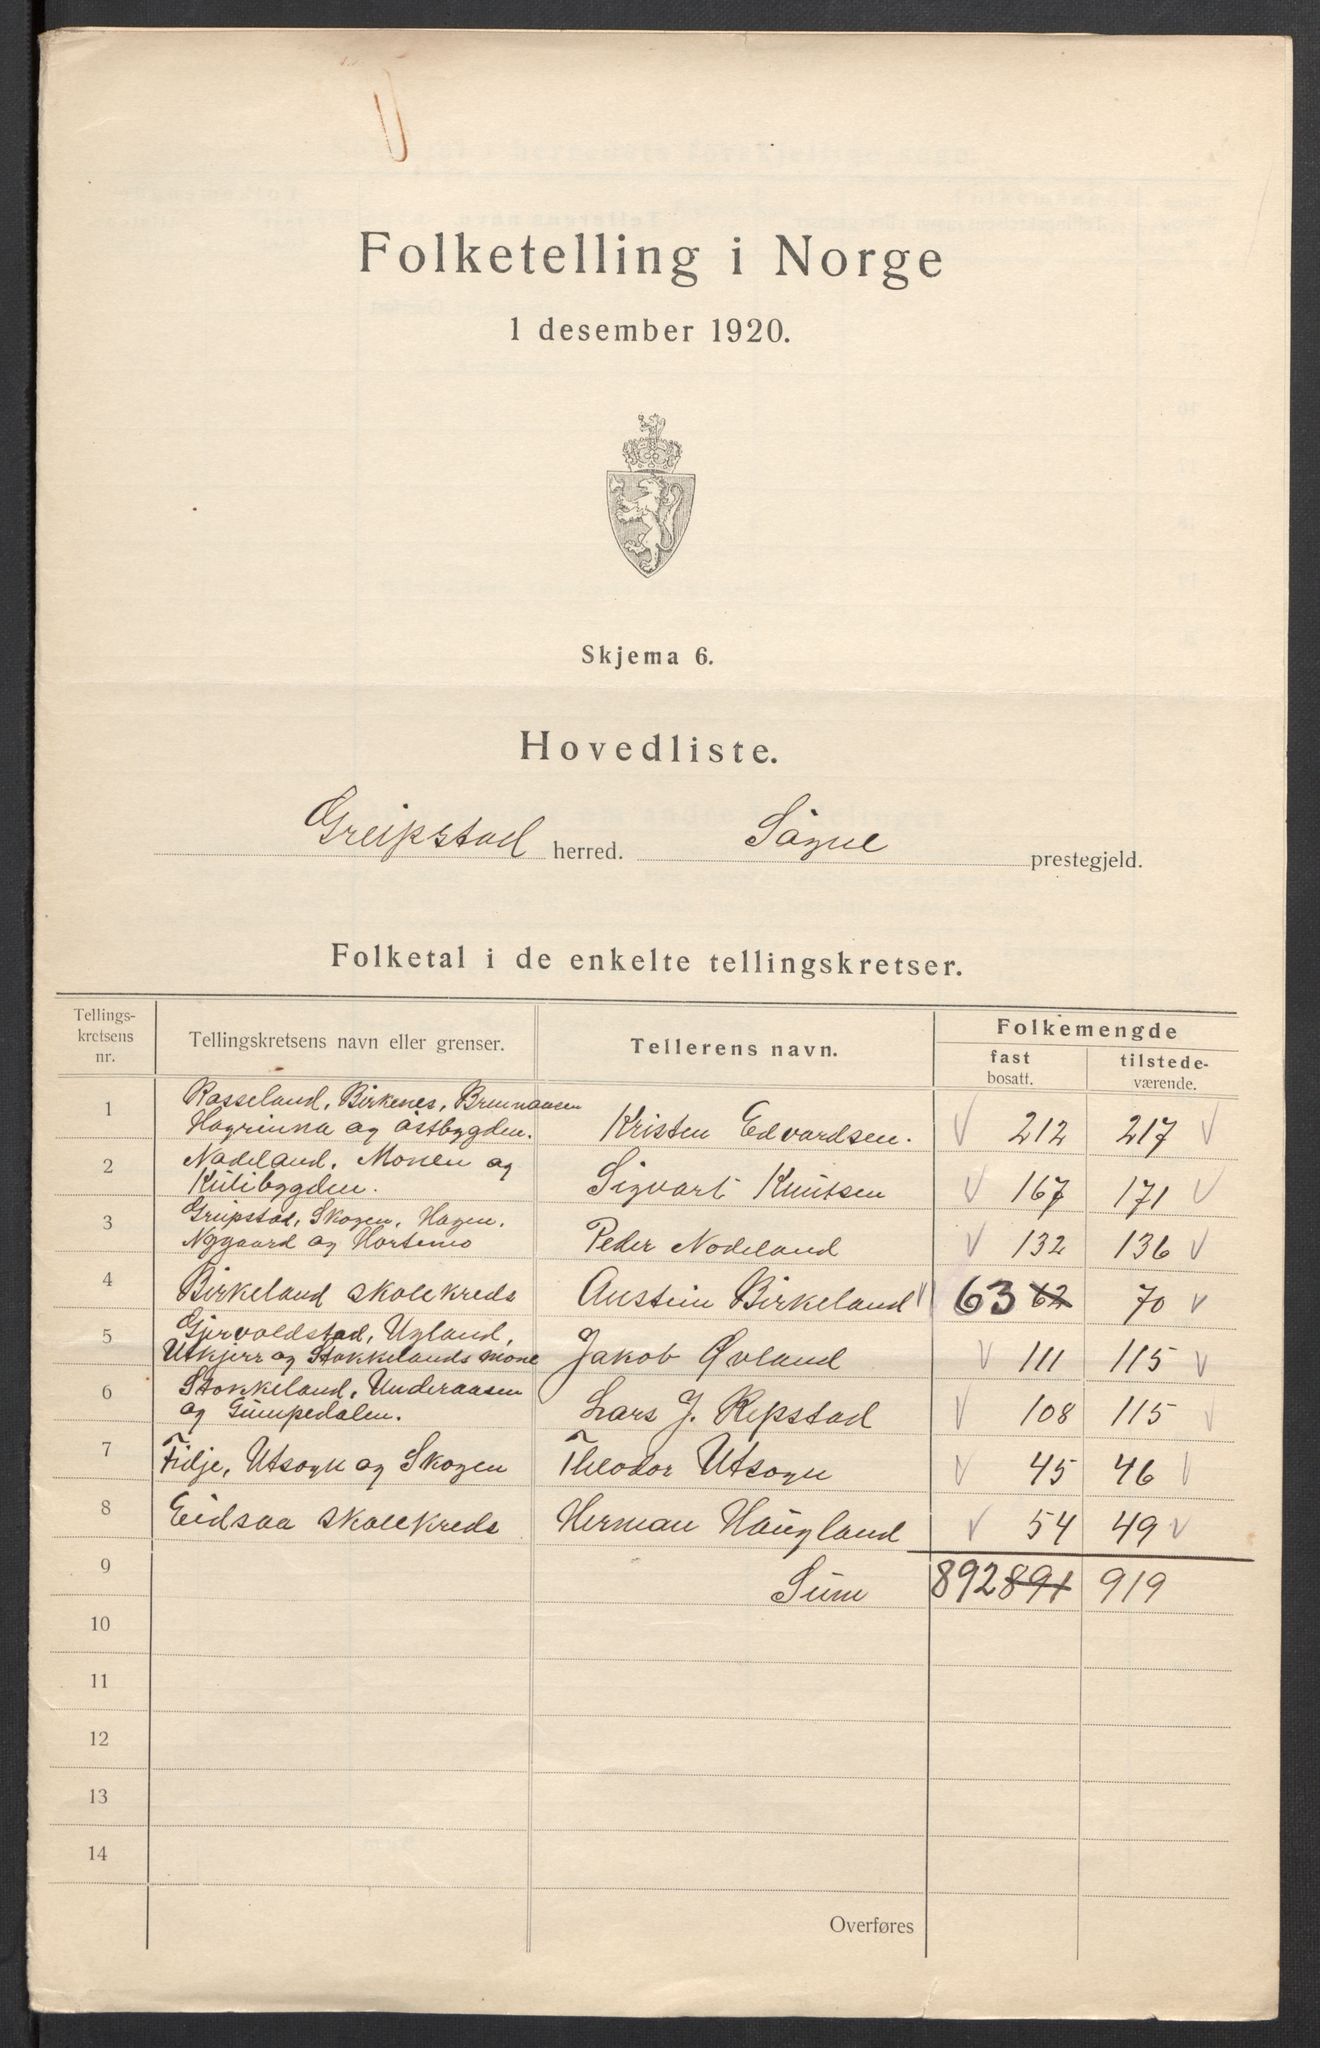 Folketelling i Norge
1 desember 1920.
Skjema 6.
Hovedliste.
Greipstad herred. Søgne prestegjeld.
Folketal i de enkelte tellingskretser.
Tellings-
kretsens
nr.
Tellingskretsens navn eller grenser.
Tellerens navn.
Folkemengde
fast
bosatt.
tilstede-
værende.
1 Rasseland, Birkenes, Brunnaasen
Hagrinna og Østbygden. Kristen Edvardsen. 212 217
2 Nodeland, Monen og
Kulibygden. Sigvart Knutsen 167 171
3 Greipstad, Skogen, Hagen,
Nygaard og Hortemo Peder Nodeland 132 136
4 Birkeland skolekreds Austein Birkeland 63 62 70
5 Gjervoldstad, Ugland,
Utkjerr og Stokkelands mone Jakob Øvland 111 115
6 Stokkeland, Underaasen
og Gumpedalen. Lars J. Repstad 108 115
7 Fidje, Utsogn og Skogen Theodor Utsogn 45 46
8 Eidsaa skolekreds Herman Haugland 54 49
9 Sum 892 891 919
10
11
12
13
14
Overføres